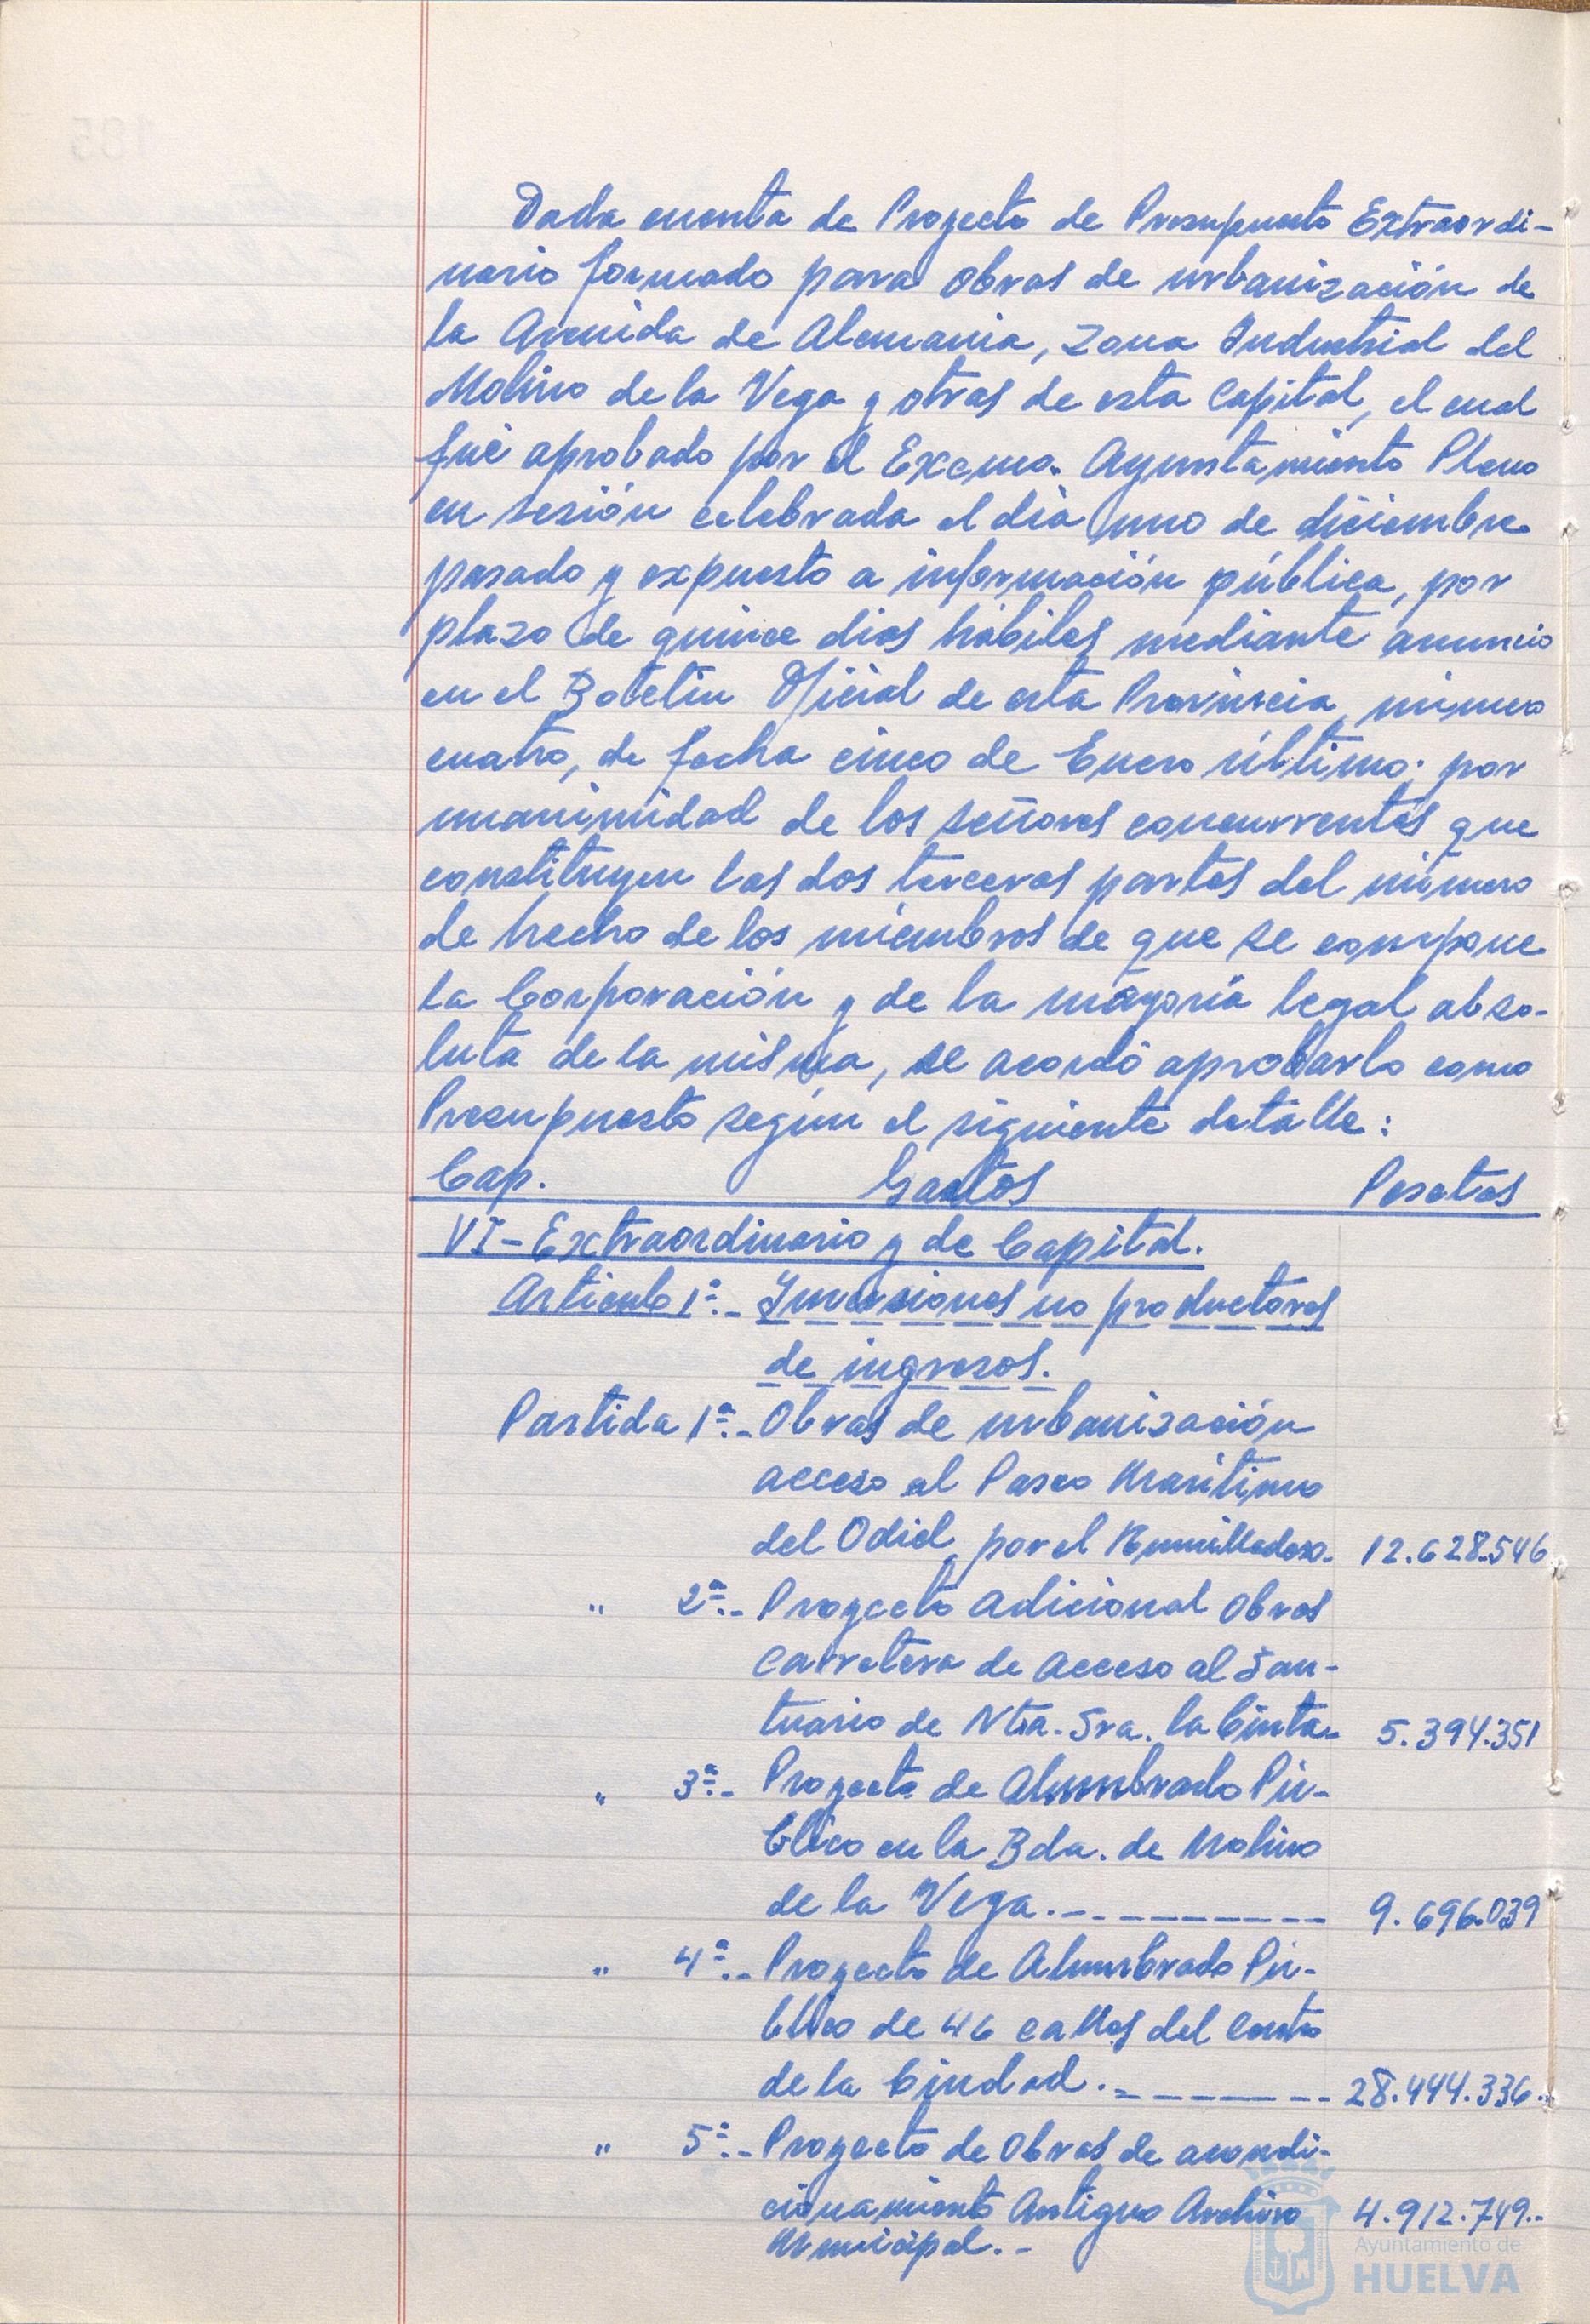 Dada cuenta de Proyecto de Presupuesto Extraordi-
nario formado para obras de urbanización de
la Avenida de Alemania, Zona Industrial del
Molino de la Vega y otras de esta Capital, el cual
fué aprobado por el Excmo. Ayuntamiento Pleno
en sesión celebrada el día uno de diciembre
pasado y expuesto a información pública, por
plazo de quince dias hábiles mediante anuncio
en el Boletin Oficial de esta Provincia, número
cuatro, de fecha cinco de Enero último; por
unanimidad de los señores concurrentes que
constituyen las dos terceras partes del número
de hecho de los miembros de que se compone
la Corporación y de la mayoría legal abso-
luta de la misma, se acordó aprobarlo como
Presupuesto según el siguiente detalle:
Cap. Gastos Pesetas
VI- Extraordinario y de Capital.
Articulo 1º.- Inversiones no productoras
de ingresos.
Partida 1ª.- Obras de urbanización
acceso al Paseo Marítimo
del Odiel, por el Humilladero. 12.628.546
" 2ª.- Proyecto adicional obras
carretera de acceso al San-
tuario de Ntra. Sra. la Cinta. 5.394.351
" 3ª.- Proyecto de Alumbrado Pú-
blico en la Bda. de Molino
de la Vega.---------- 9.696.039
" 4ª.- Proyecto de Alumbrado Pú-
blico de 46 calles del centro
de la Ciudad.-------- 28.444.336.-
" 5ª.- Proyecto de Obras de acondi-
cionamiento Antiguo Archivo 4.912.749.-
Municipal.-
Ayuntamiento de
HUELVA